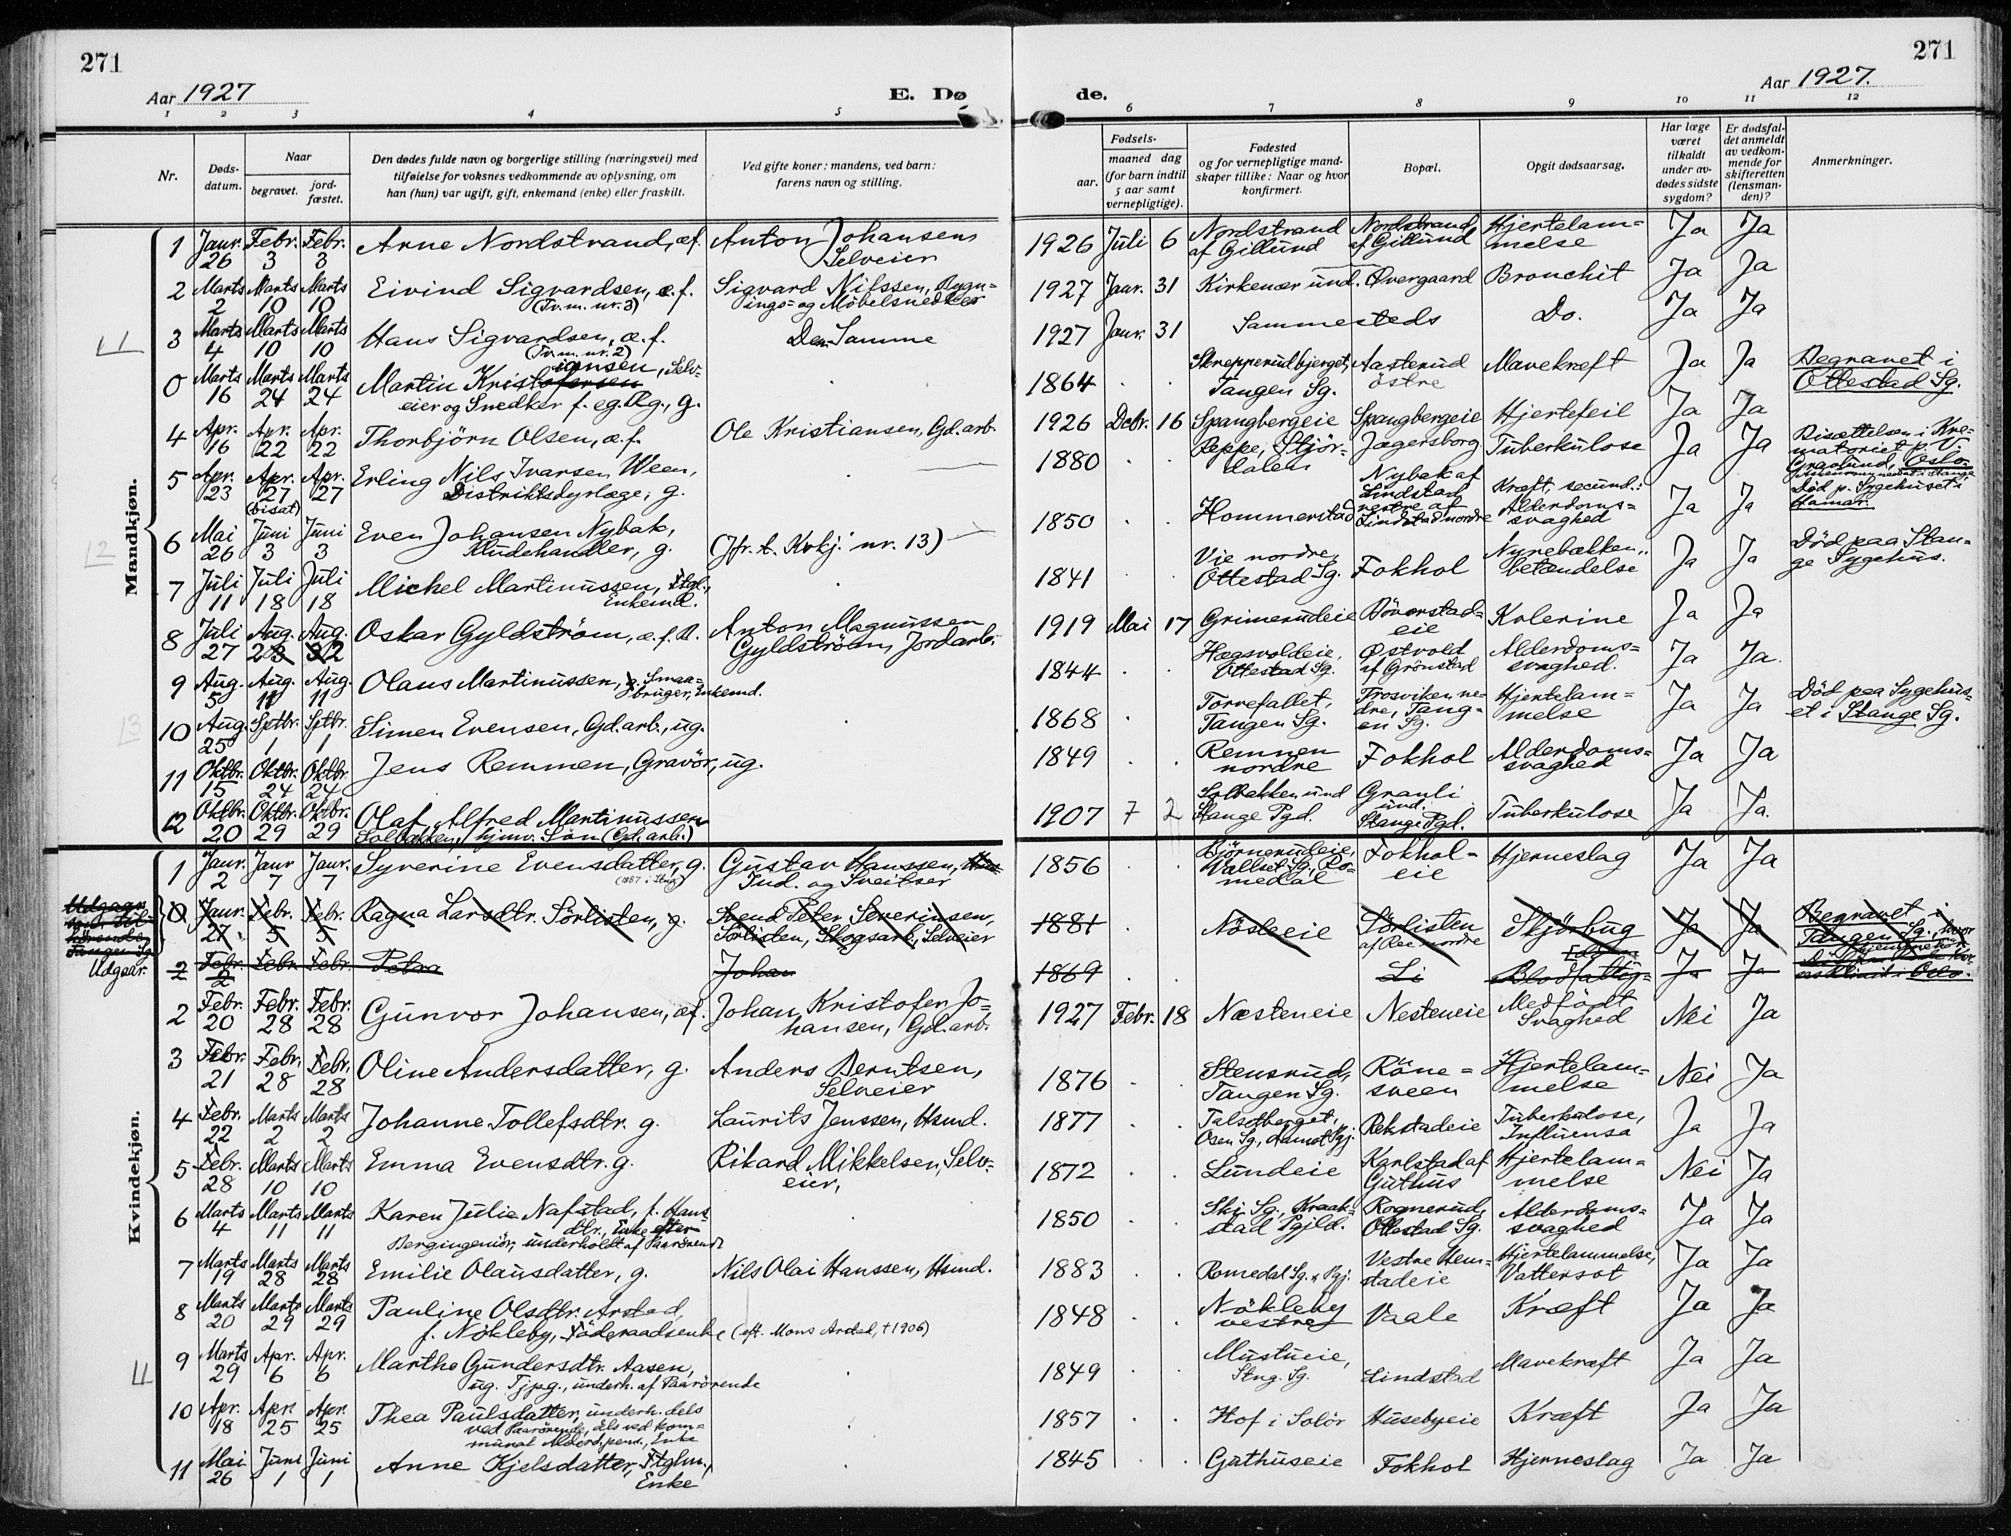 271
271
Aar 1927
E. Dø
de.
Aar 1927.
1 2 3 4 5
6 7 8 9 10 11 12
Nr.
Døds-
datum.
Naar
begravet.
jord-
fæstet.
Den dødes fulde navn og borgerlige stilling (næringsvei) med
tilføielse for voksnes vedkommende av oplysning, om
han (hun) var ugift, gift, enkemand (enke) eller fraskilt.
Ved gifte koner: mandens, ved barn:
farens navn og stilling.
Fødsels-
aar.
maaned dag
(for barn indtil
5 aar samt
vernepligtige).
Fødested
og for vernepligtige mand-
skaper tillike: Naar og hvor
konfirmert.
Bopæl.
Opgit dødsaarsag.
Har læge
været
tilkaldt
under av-
dødes sidste
sygdom?
Er dødsfal-
det anmeldt
av vedkom-
mende for
skifteretten
(lensman-
den)?
Anmerkninger.
Mandkjøn.
1 Janr. 26 Febr. 3 Febr. 3 Arne Nordstrand, æf. Anton Johansen Selveier 1926 Juli 6 Nordstrand af Gillund Nordstrand af Gillund Hjertelam=melse Ja Ja
2 Marts 2 Marts 10 Marts 10 Eivind Sigvardsen, æ.f. (Tv.m. nr. 3) Sigvard Nilssen, Bygn=ings= og Møbelsnedker 1927 Janr. 31 Kirkenær und. Øvergaard Bronchit Ja Ja
3 Marts 4 Marts 10 Marts 10 Hans Sigvardsen, æ.f. (Tv.m. nr. 2) Den Samme 1927 Janr. 31 Sammesteds Do. Ja Ja
0 Marts 16 Marts 24 Marts 24 Martin Kristofersen iansen, Selv=eier og Snedker f. eg. Rg., g. 1864 Skrepperudbjerget, Tangen Sg. Aasterud östre Mavekreft Ja Ja Begravet i Ottestad Sg.
4 Apr. 16 Apr. 22 Apr. 22 Thorbjörn Olsen, æ.f. Ole Kristiansen, Gd.arb. 1926 Debr. 16 Spangbergeie Spangbergeie Hjertefeil Ja Ja
5 Apr. 23 Apr. 27 (bisat) Apr. 27 Erling Nils Ivarsen Ween, Distriktsdyrlæge, g. 1880 Reppe, Stjör=dalen Jægersborg Tuberkulose Ja Ja Bisættelsen i Kre=matoriet p. V. Gravlund, Oslo
6 Mai 26 Juni 3 Juni 3 Even Johansen Nybak, Kludehandler, g. (Jfr. t. Kvkj. nr. 13) 1850 Hommerstad Nybak af Lindstad vestre af Lindstad nordre Kræft, secund.: Alderdoms=svaghed Ja Ja Död p. Sygehuset i Hamar.
7 Juli 11 Juli 18 Juli 18 Michel Martinussen, Ftgl., Enkemd. 1841 Vie nordre, Ottestad Sg. Fokhol Nyrebækken=betændelse Ja Ja Död paa Stan=ge Sygehus.
8 Juli 27 Aug. 2 Aug. 2 Oskar Gyldström, æ.f. Anton Magnussen Gyldström, Jordarb. 1919 Mai 17 Grimerudeie Böverstad=eie Kolerine Ja Ja
9 Aug. 5 Aug. 11 Aug. 11 Olaus Martinussen, Smaa=bruger, Enkemd. 1844 Hægsvoldeie, Ottestad Sg. Østvold af Grönstad Alderdoms=svaghed. Ja Ja.
10 Aug. 25 Sptbr. 1 Sptbr. 1 Simen Evensen, Gd.arb., ug. 1868 Torrefallet, Tangen Sg. Frosviken ne=dre, Tang=en Sg. Hjertelam=melse Ja Ja Död paa Sygehus=et i Stange Sg.
11 Oktbr. 15 Oktbr. 24 Oktbr. 24 Jens Remmen, Gravör, ug. 1849 Remnen nordre Fokhol Alderdoms=svaghed Ja Ja
12 Oktbr. 20 Oktbr. 29 Oktbr. 29 Olaf Alfred Martinussen Solbakken, hjmv. Sön (Gd. arb.) 1907 7 2 Solbakken und Stange Pgd. Granli und. Stange Pgd. Tuberkulose Ja Ja.
Kvindekjøn.
1 Janr. 2 Janr 7 Janr. 7 Syverine Evensdatter, g. Gustav Hanssen, Ind. og Sveitser 1856 Björnerudeie, Vallset Sg., Ro=medal Fokhol=eie Hjerneslag Ja Ja
0 Janr. 27 Febr. 5 Febr. 5 Ragna Larsdtr. Sörlisten, g. Svend Peter Severinsen, Sörlisten, Skogsarb., Selveier 1881 Nösleeie Sörlisten af Ree nordre Skjörbug Ja Ja Begravet i Tangen Sg., hvor
Udgaar.
2 Febr. 2 Febr. Febr. Petra Johan 1869 Li Ja Ja Oslo.
2 Febr. 20 Febr. 28 Febr. 28 Gunvor Johansen, æf. Johan Kristofer Jo=hansen, Gd.arb. 1927 Febr. 18 Næsteneie Nesteneie Medfödt Svaghed Nei Ja
3 Febr. 21 Febr. 28 Febr. 28 Oline Andersdatter, g. Anders Berntsen, Selveier 1876 Stensrud, Tangen Sg. Röne=sveen Hjertelam=melse Nei Ja
4 Febr. 22 Marts 2 Marts 2 Johanne Tollefsdtr. g. Laurits Jenssen, Hsmd. 1877 Talsetberget, Osen Sg., Aamot Pgj. Rekstadeie Tuberkulose, Influensa Ja Ja
5 Febr. 28 Marts 10 Marts 10 Emma Evensdtr. g. Rikard Mikkelsen, Selv=eier, 1872 Lundeie Karlstad af Guthus Hjertelam=melse Nei Ja
6 Marts 4 Marts 11 Marts 11 Karen Julie Nafstad, f. Hans=dtr., Enke efter Bergingeniör, underholdt af Paarörende 1850 Ski Sg., Kraak=stad Pgjld. Rognerud, Ottestad Sg. Alderdoms=svaghed Ja Ja
7 Marts 19 Marts 28 Marts 28 Emilie Olausdatter, g. Nils Olai Hanssen, Hsmd. 1883 Romedal Sg. & Pgj. Vestre Hem=stadeie Hjertelammelse, Vattersot Ja Ja
8 Marts 20 Marts 29 Marts 29 Pauline Olsdtr. Arstad, f. Nökleby, Föderaadsenke (eft. Mons Arstad, †1906) 1848 Nökleby vestre Vaale Kræft Ja Ja
9 Marts 29 Apr. 6 Apr. 6 Marthe Gundersdtr. Aasen, ug. Tjpg., underh. af Paarörende 1849 Mustueie, Stng. Sg. Lindstad Mavekræft Ja Ja
10 Apr. 18 Apr. 25 Apr. 25 Thea Paulsdatter, underh. dels ved Paarörende, dels ved kom=munal Alderd.pens., Enke 1857 Hof i Solör Husebyeie Kræft Ja Ja
11 Mai 26 Juni 1 Juni 1 Anne Kjelsdatter, Ftglm., Enke 1845 Guthuseie Fokhol Hjerneslag Ja Ja